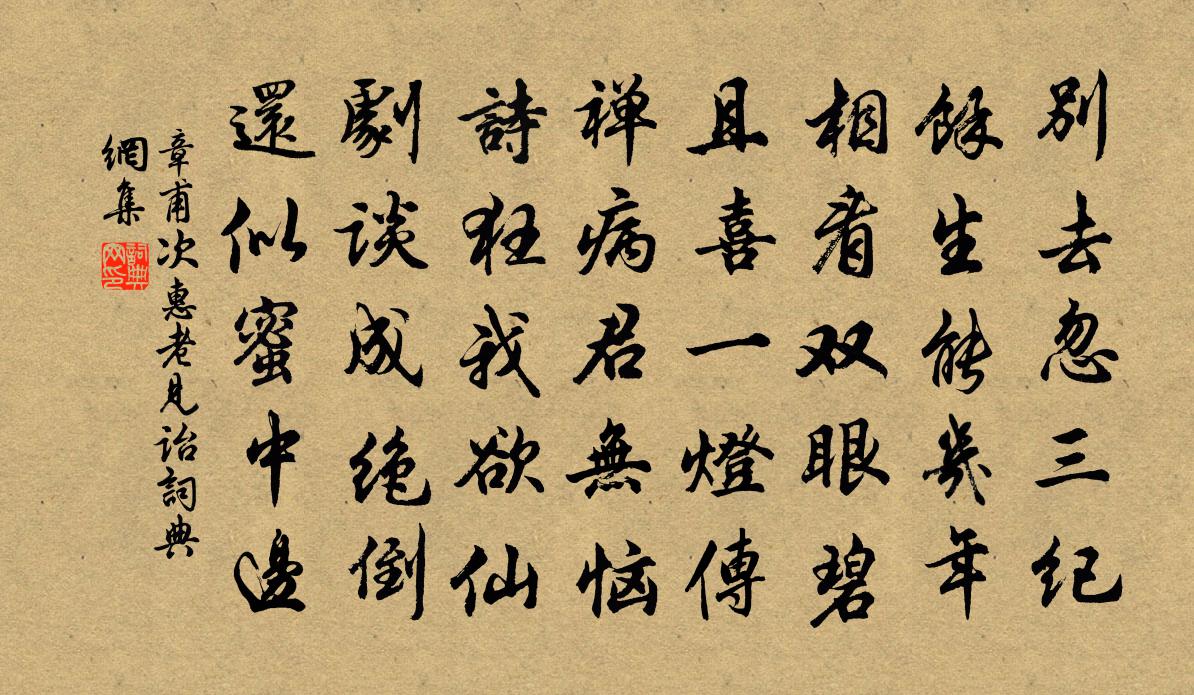 别去忽三纪
餘生能幾年
相看双眼碧
且喜一燈傳
禅病君無恼
詩狂我欲仙
劇谈成绝倒
還似蜜中邊
章甫次惠老見诒詞典
網集
詞典
网印